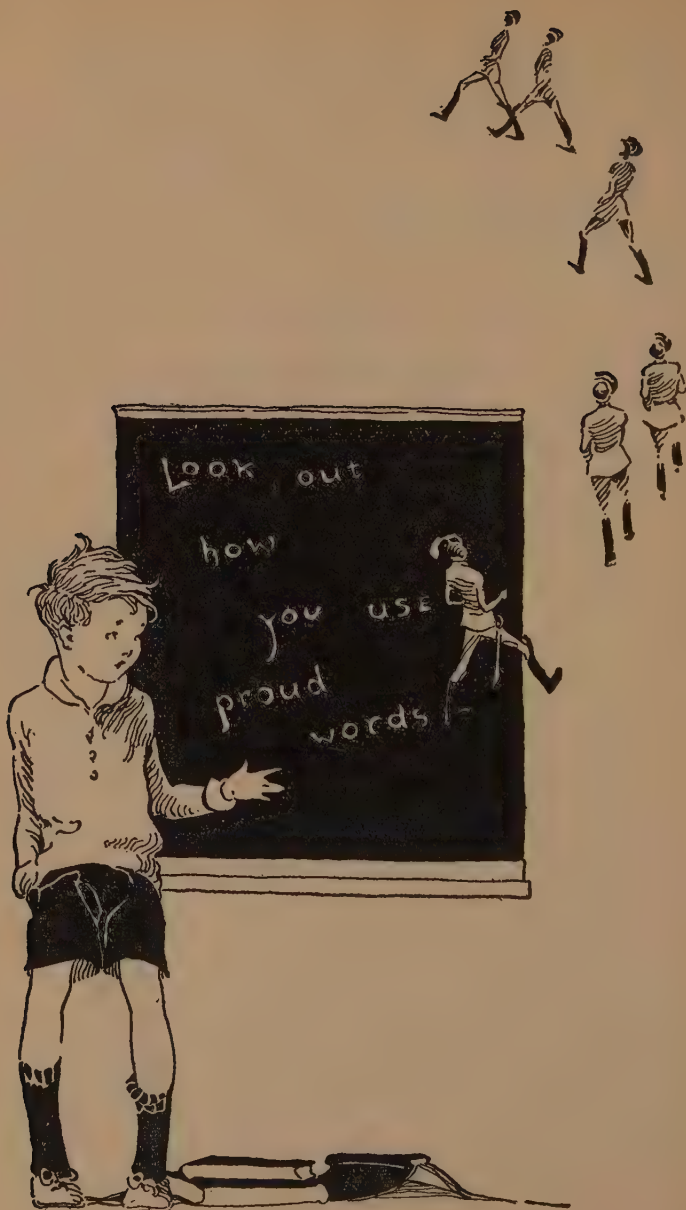 Look out
how
you use
proud
words